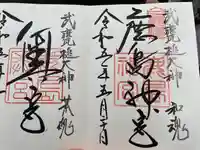 武甕槌大神 和魂
鹿島神宮
令和五年五月
武甕槌大神 荒魂
奥宮
令和五年